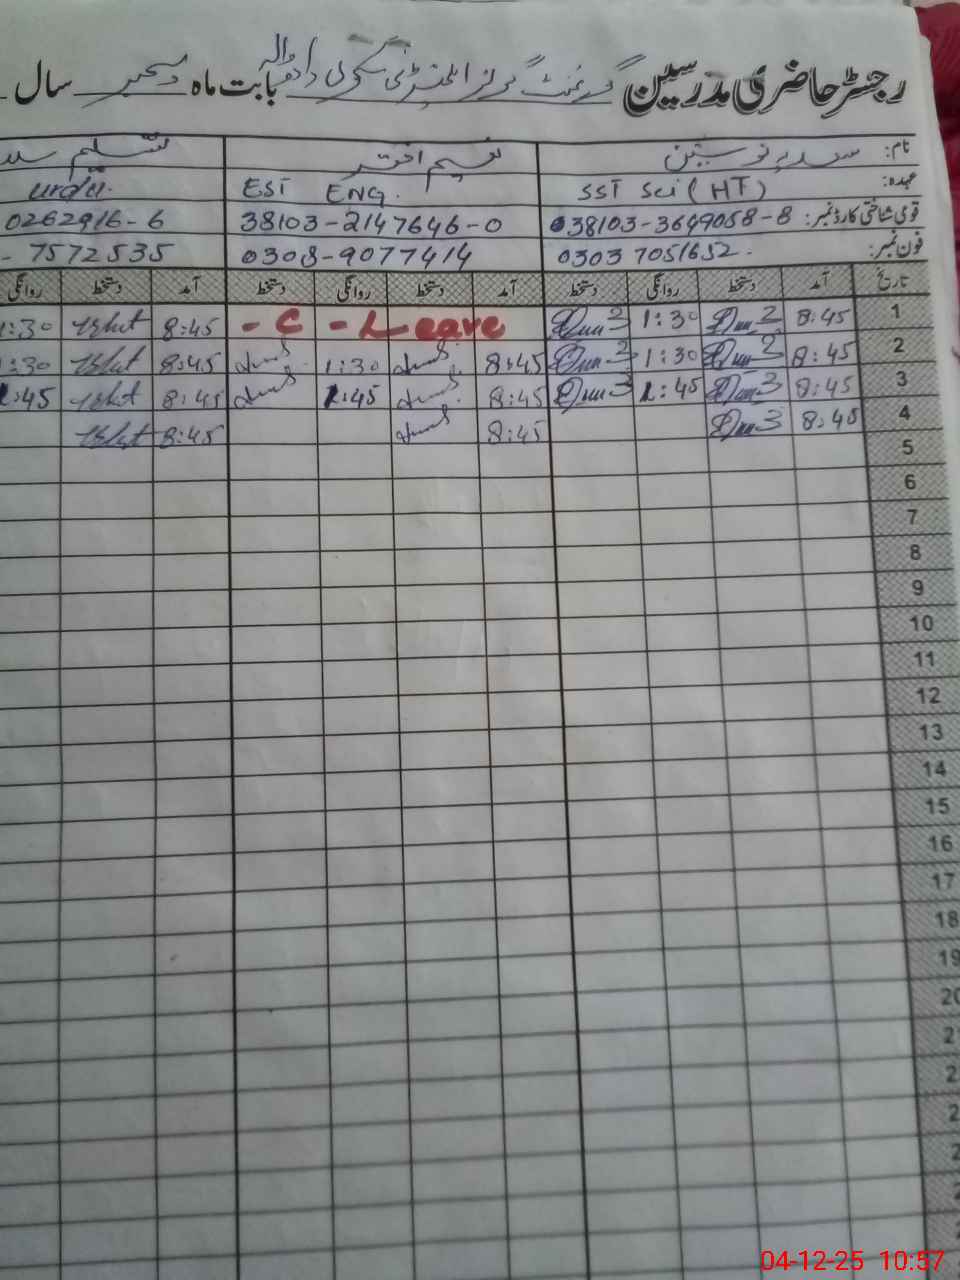 رجسٹر حاضری مدرسین گورنمنٹ گرلز ایلمنٹری سکول بابت ماہ دسمبر سال
نام: سعدیہ نوسین نسیم اختر تسلیم
عہدہ: SST Sci (HT) EST ENG. Urdu.
قومی شناختی کارڈ نمبر: 38103-3649058-8 38103-2147646-0 0262916-6
فون نمبر: 0303 7051652. 0308-9077414 - 7572535
تاریخ آمد دستخط روانگی دستخط آمد دستخط روانگی دستخط آمد دستخط روانگی
1 8:45 1:30 - C - Leave 8:45 1:30
2 8:45 1:30 8:45 1:30 8:45 1:30
3 8:45 1:45 8:45 1:45 8:45 1:45
4 8:45 8:45 8:45
5
6
7
8
9
10
11
12
13
14
15
16
17
18
19
20
2
2
2
2
04-12-25 10:57